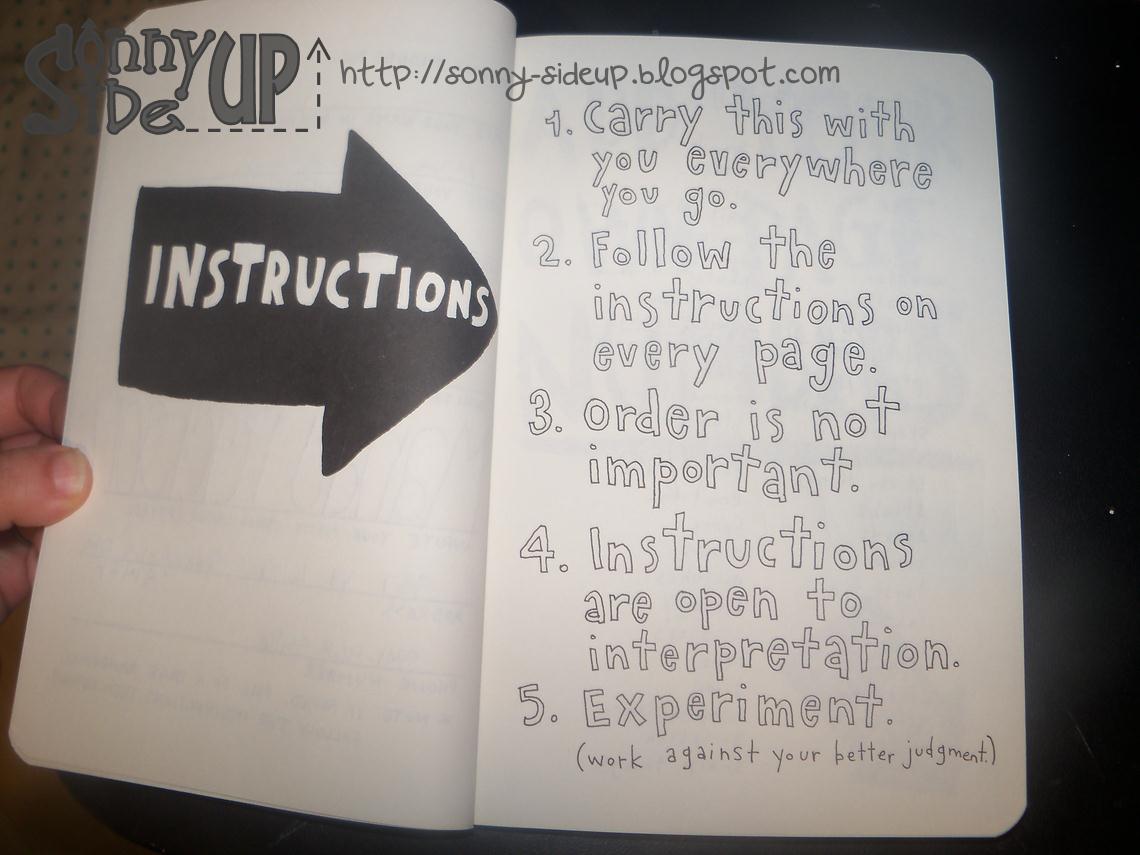 Sonny
Side UP
http://sonny-sideup.blogspot.com
INSTRUCTIONS
1. Carry this with
you everywhere
you go.
2. Follow the
instructions on
every page.
3. Order is not
important.
4. Instructions
are open to
interpretation.
5. Experiment.
(work against your better judgment.)